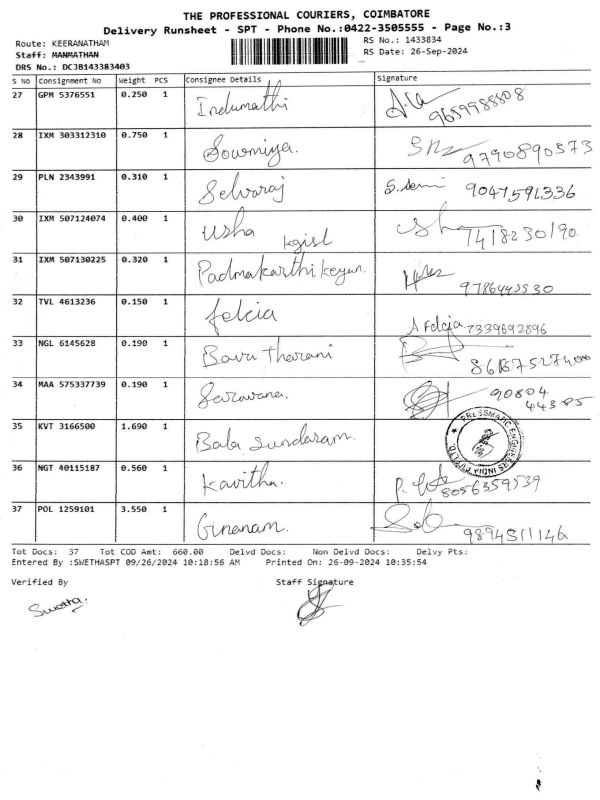 THE PROFESSIONAL COURIERS, COIMBATORE
Delivery Runsheet - SPT - Phone No.:0422-3505555 - Page No.:3
Route: KEERANATHAM RS No.: 1433834
Staff: MANMATHAN RS Date: 26-Sep-2024
DRS No.: DCJB143383403
S No Consignment No Weight PCS Consignee Details Signature
27 GPM 5376551 0.250 1 Indumathi 9659988808
28 IXM 303312310 0.750 1 Sowmiya. 9790890573
29 PLN 2343991 0.310 1 Selvaraj 9047591336
30 IXM 507124074 0.400 1 Usha kgisl 7418230190
31 IXM 507130225 0.320 1 Padmakarthikeyan.
32 TVL 4613236 0.150 1 felcia A Felcia 7339692896
33 NGL 6145628 0.190 1 Bava Tharani
34 MAA 575337739 0.190 1 Saravana. 90804
44385
35 KVT 3166500 1.690 1 Bala Sundaram. PRESSMATIC ENGINEERS INDIA PVT LTD
36 NGT 40115187 0.560 1 Kavitha. 8056359539
37 POL 1259101 3.550 1 Gnanam. 9894511146
Tot Docs: 37 Tot COD Amt: 660.00 Delvd Docs: Non Delvd Docs: Delvy Pts:
Entered By :SWETHASPT 09/26/2024 10:18:56 AM Printed On: 26-09-2024 10:35:54
Verified By Staff Signature
Swetha.